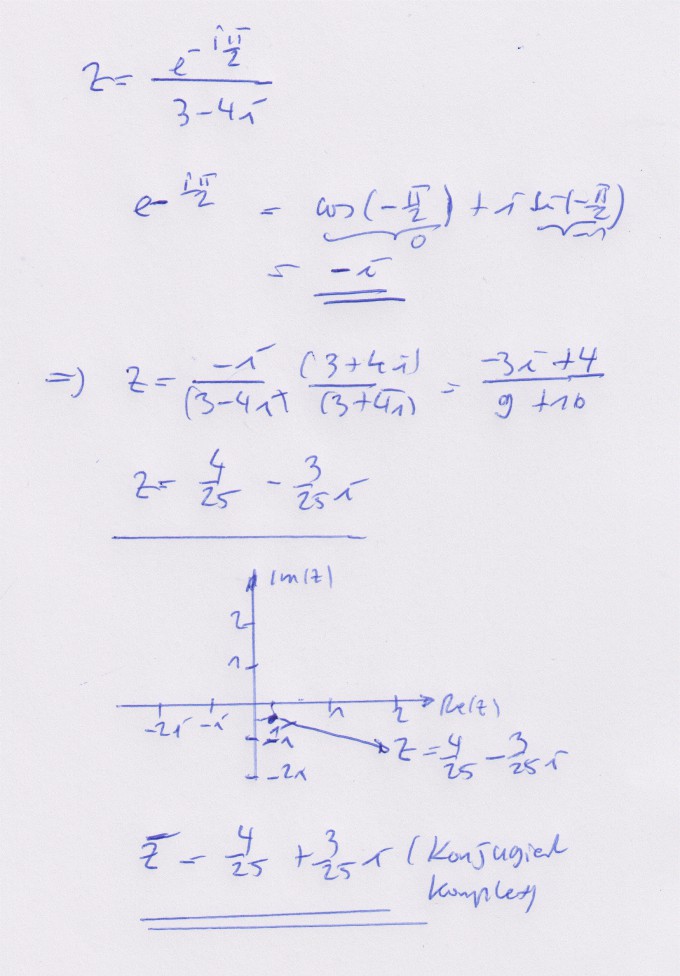 z = e^(-iπ/2) / (3-4i)
e^(-iπ/2) = cos(-π/2) + i sin(-π/2)
0 -1
= -i
=> z = -i/(3-4i) · (3+4i)/(3+4i) = (-3i+4)/(9+16)
z = 4/25 - 3/25 i
Im(z)
2
1
-2i -i 1 2 Re(z)
-1
z = 4/25 - 3/25 i
-2i
z̅ = 4/25 + 3/25 i (Konjugiert
komplex)